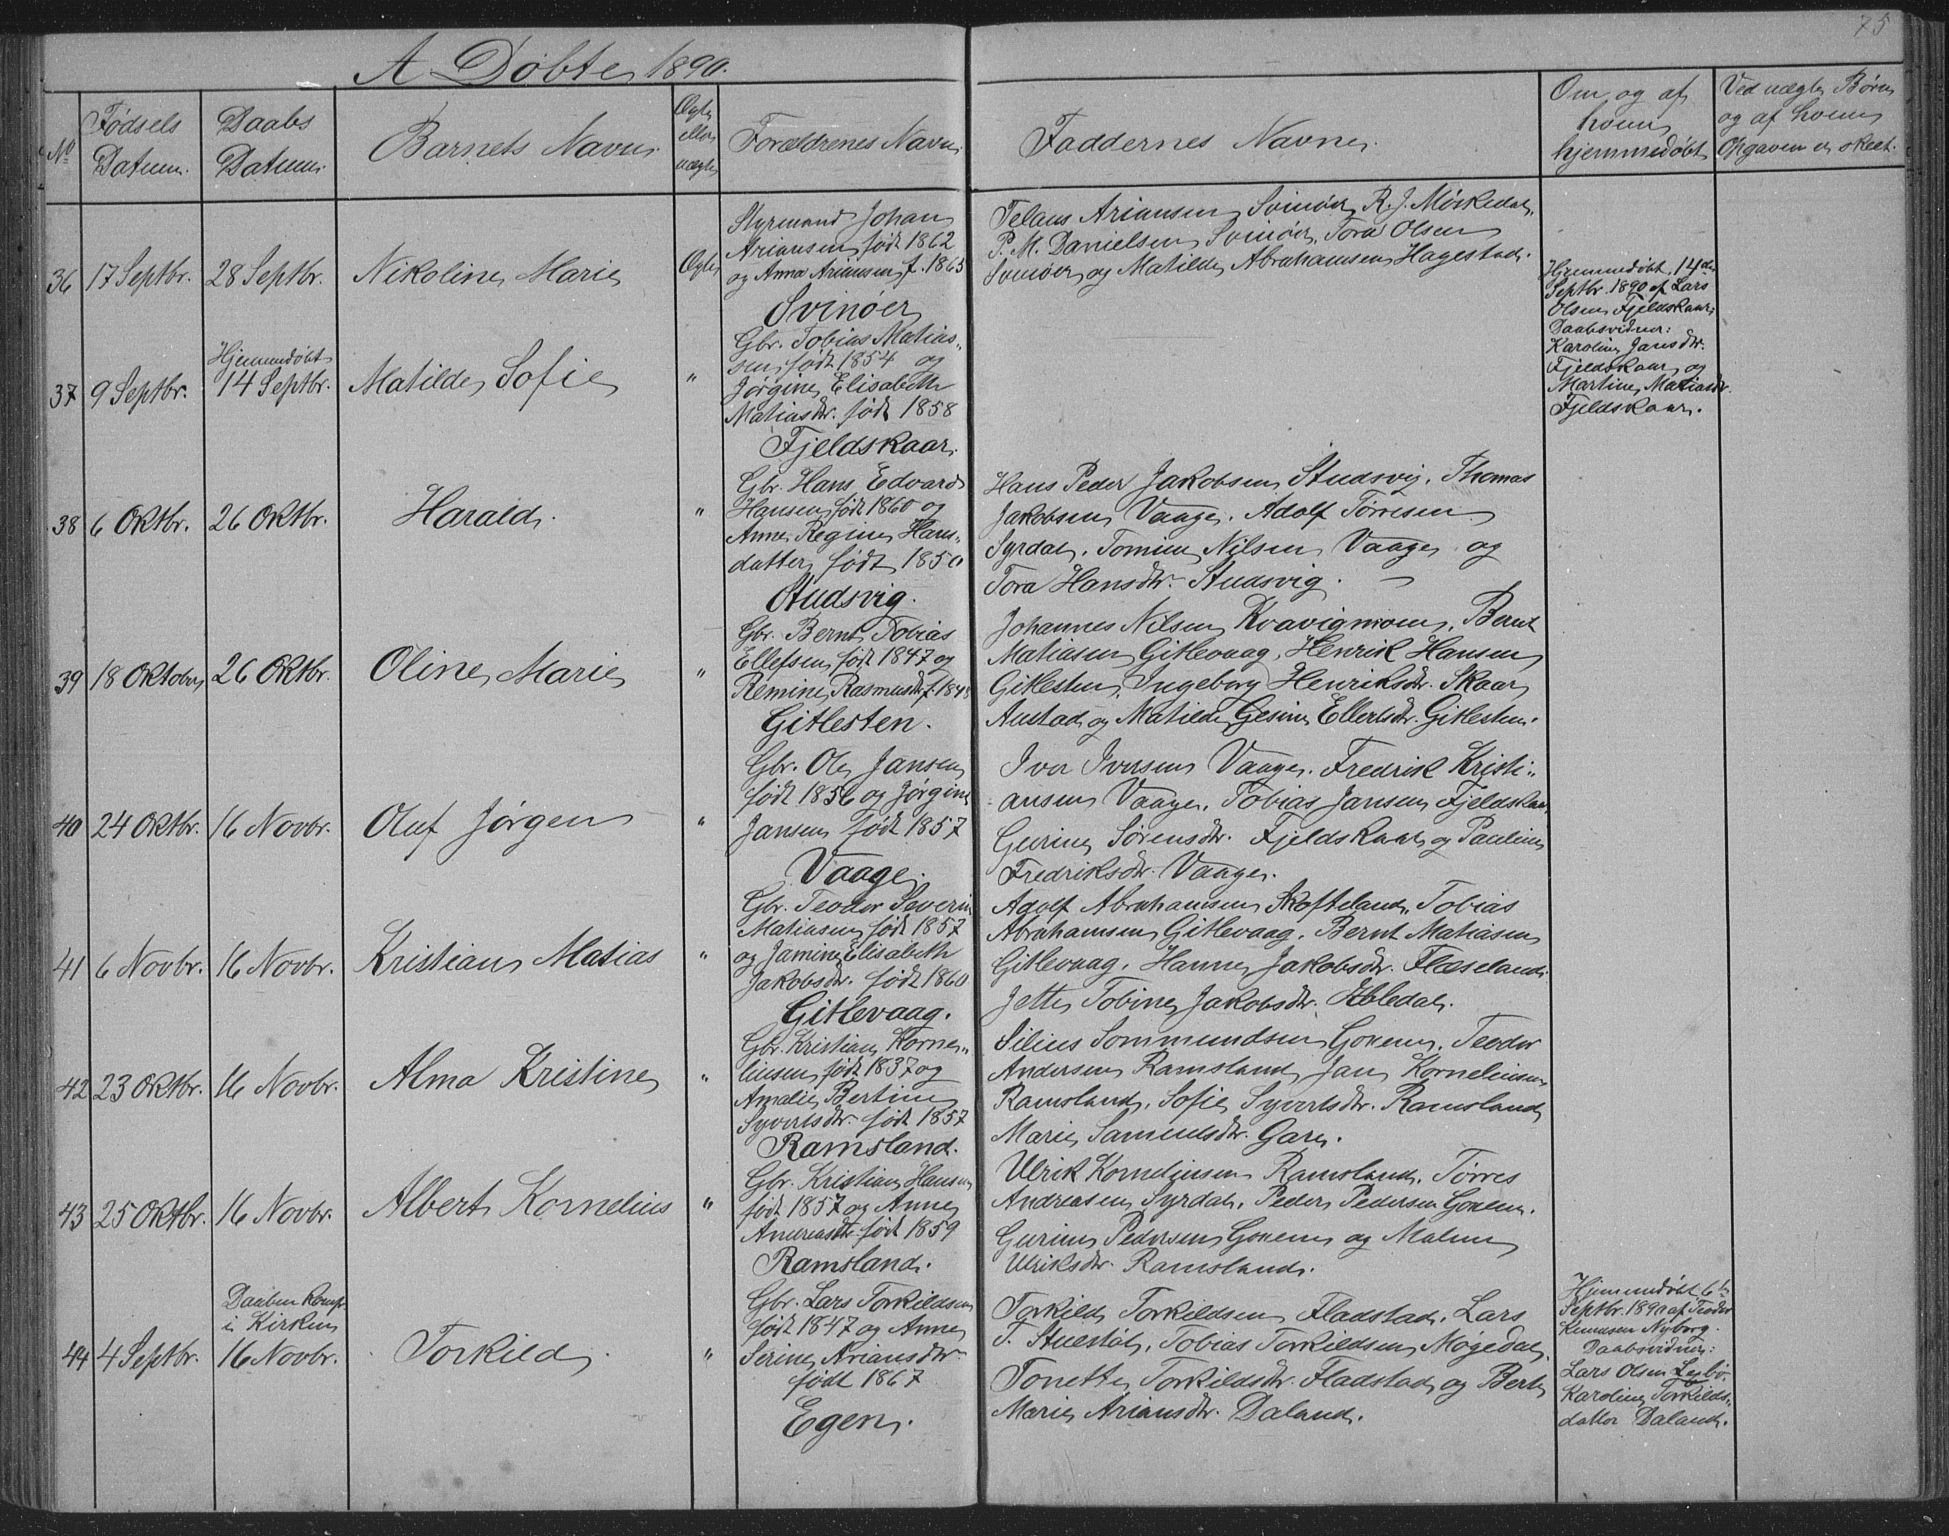 75
A Døbte 1890.
No
Fødsels Datum.
Daabs Datum.
Barnets Navn.
Ægte eller uægte
Forældrenes Navn
Faddernes Navne.
Om og af hvem hjemmedøbt
Ved uægte Børn og af hvem Opgaven er skeet.
36
17 Septbr.
28 Septbr.
Nikoline Marie
Ægte
Styrmand Johan
Ariansen født 1862
og Anna Ariansen f. 1865
Svinøer
Telaus Ariansen Svinøer, R. J. Mørkedal.
P. M. Danielsen Svinøer, Tora Olsen
Svinøer og Matilde Abrahamsen Hagestad.
37
9 Septbr.
Hjemmedøbt
14 Septbr.
Matilde Sofie
"
Gbr. Tobias Matias-
sen født 1854 og
Jørgine Elisabeth
Matiasdtr. født 1858
Fjeldskaar.
Hjemmedøbt 14de
Septbr. 1890 af Lars
Olsen Fjeldskaar.
Daabsvidner:
Karoline Jansdtr.
Fjeldskaar og
Martine Matiasdtr.
Fjeldskaar.
38
6 Oktbr.
26 Oktbr.
Harald.
"
Gbr. Hans Edvard
Hansen født 1860 og
Anne Regine Hans-
datter født 1850
Studsvig.
Hans Peder Jakobsen Studsvig, Thomas
Jakobsen Vaage, Adolf Tørresen
Syrdal, Tomine Nilsen Vaage og
Tora Hansdtr. Studsvig.
39
18 Oktober
26 Oktbr.
Oline Marie
"
Gbr. Bernt Tobias
Ellefsen født 1847 og
Remine Rasmusdtr. f. 1848
Gitlesten.
Johannes Nilsen Kvavigmoen, Bernt
Matiasen Gitlevaag, Henrik Hansen
Gitlesten, Ingeborg Henriksdtr. Skaar
Austad og Matilde Gesine Ellertsdtr. Gitlesten.
40
24 Oktbr.
16 Novbr.
Oluf Jørgen
"
Gbr. Ole Jansen
født 1856 og Jørgine
Jansen født 1857
Vaage.
Iver Iversen Vaage, Fredrik Kristi-
ansen Vaage, Tobias Jansen Fjeldskaar
Gurine Sørensdtr. Fjeldskaar og Pauline
Fredriksdtr. Vaage.
41
6 Novbr.
16 Novbr.
Kristian Matias
"
Gbr. Teodor Severin
Matiasen født 1857
og Jamine Elisabeth
Jakobsdtr. født 1860
Gitlevaag.
Adolf Abrahamsen Skofteland, Tobias
Abrahamsen Gitlevaag, Bernt Matiasen
Gitlevaag, Hanne Jakobsdtr. Flæseland.
Jette Tobine Jakobsdtr. Ebledal.
42
23 Oktbr.
16 Novbr.
Alma Kristine
"
Gbr. Kristian Korne-
liusen født 1837 og
Amalie Bertine
Syvertsdtr. født 1857
Ramsland.
Silius Sommundsen Goxem, Teodor
Andersen Ramsland, Jan Korneliusen
Ramsland, Sofie Syvertsdtr. Ramsland
Marie Samuelsdtr. Gare.
43
25 Oktbr.
16 Novbr.
Albert Kornelius
"
Gbr. Kristian Hansen
født 1857 og Anne
Andreasdtr. født 1859
Ramsland.
Ulrik Korneliusen Ramsland, Tørres
Andreasen Syrdal, Peder Pedersen Goxem.
Gurine Pedersen Goxem og Malene
Ulriksdtr. Ramsland.
44
4 Septbr.
Daaben komf.
i Kirken
16 Novbr.
Torkild
"
Gbr. Lars Torkildsen
født 1847 og Anne
Serine Ariansdtr.
født 1867
Egen.
Torkild Torkildsen Fladstad, Lars
T. Stuestøl, Tobias Torkildsen Møgedal,
Tonette Torkildsdtr. Fladstad og Berte
Marie Ariansdtr. Daland.
Hjemmedøbt 6te
Septbr. 1890 af Teodor
Knudsen Nyborg.
Daabsvidner:
Lars Olsen
Karoline Torkilds-
datter Daland.